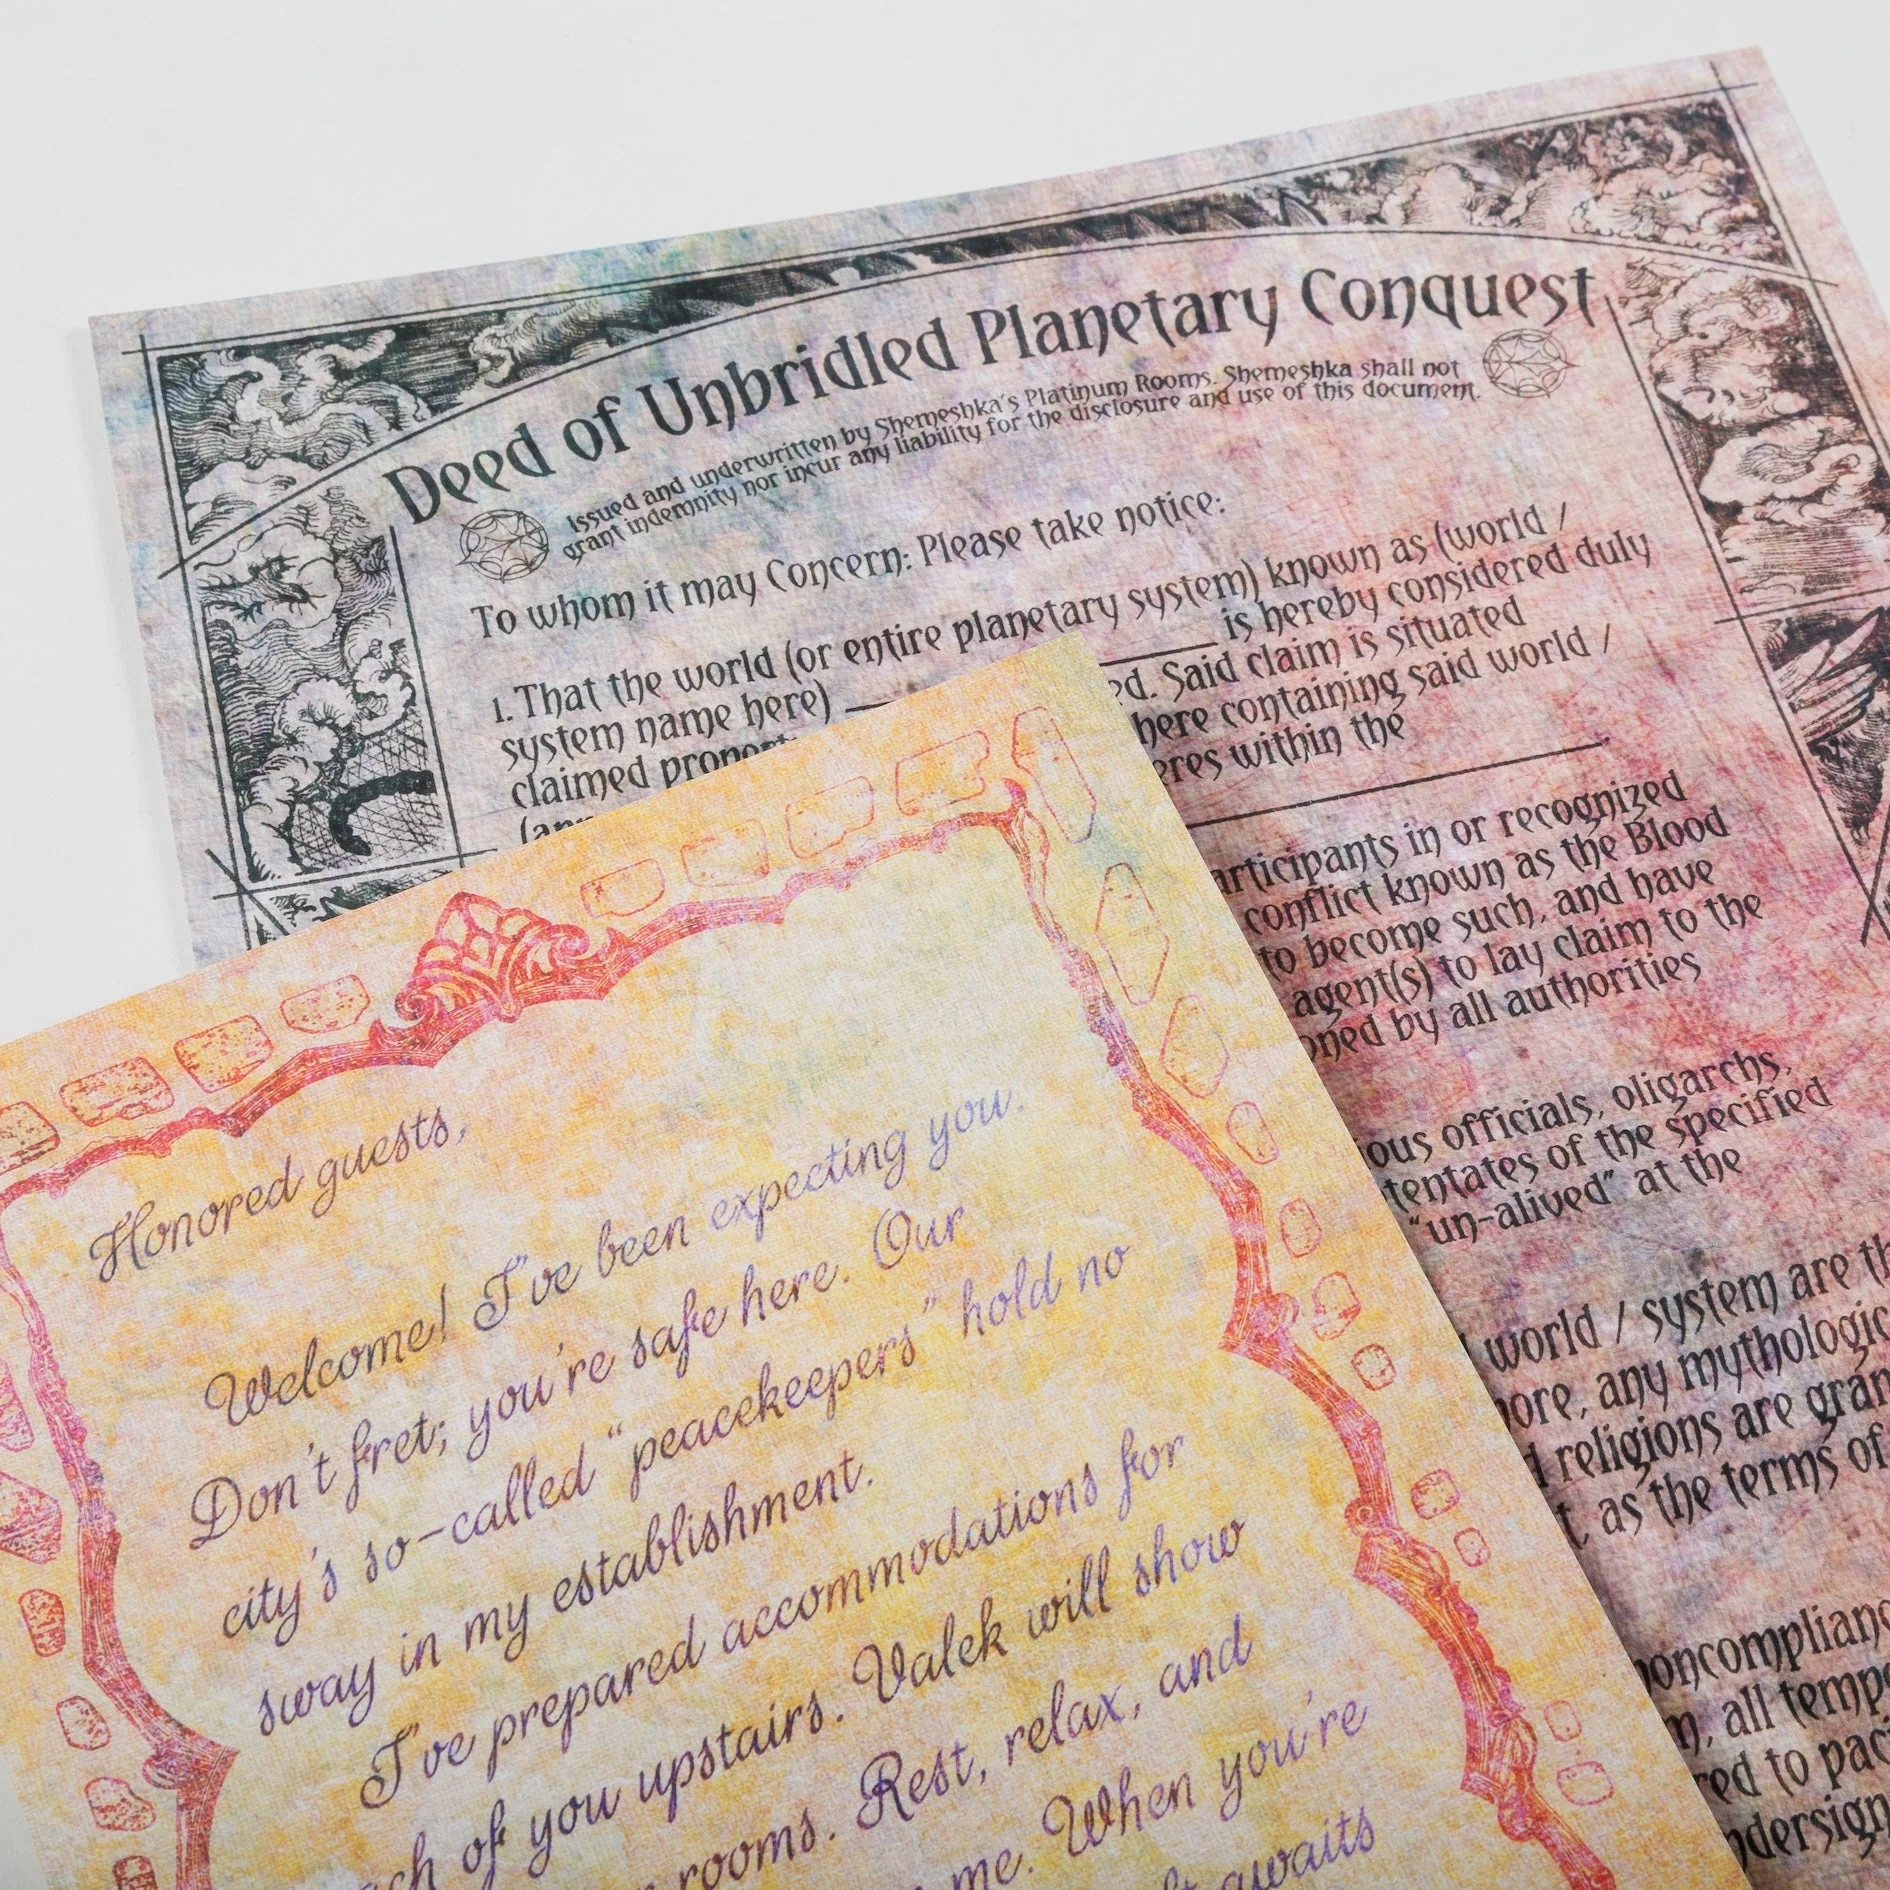 Deed of Unbridled Planetary Conquest
Issued and underwritten by Shemeshka's Platinum Rooms. Shemeshka shall not
grant indemnity nor incur any liability for the disclosure and use of this document.
To whom it may Concern: Please take notice:
1. That the world (or entire planetary system) known as (world /
system name here) is hereby considered duly
claimed Said claim is situated
here containing said world /
within the
in or recognized
conflict known as the Blood
to become such, and have
agent(s) to lay claim to the
by all authorities
officials, oligarchs,
of the specified
"un-alived" at the
world / system are
any
religions are
as the terms of
all
to
Honored guests,
Welcome! I've been expecting you.
Don't fret; you're safe here. Our
city's so-called "peacekeepers" hold no
sway in my establishment.
I've prepared accommodations for
of you upstairs. Valek will show
rooms. Rest, relax, and
me. When you're
awaits